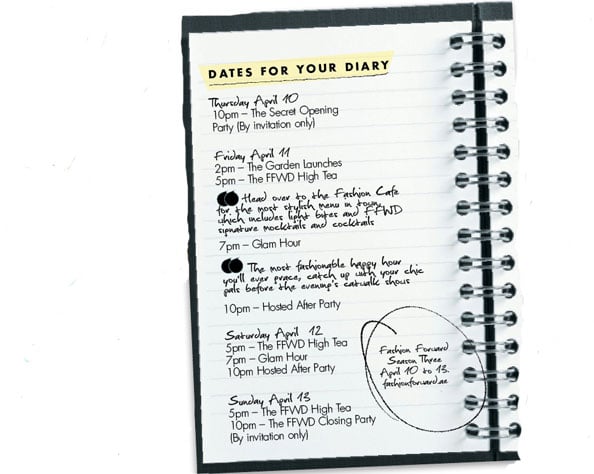 DATES FOR YOUR DIARY
Thursday April 10
10pm – The Secret Opening
Party (By invitation only)
Friday April 11
2pm – The Garden Launches
5pm – The FFWD High Tea
Head over to the Fashion Cafe
for the most stylish menu in town
which includes light bites and FFWD
signature mocktails and cocktails
7pm – Glam Hour
The most fashionable happy hour
you'll ever grace, catch up with your chic
pals before the evening's catwalk shows
10pm – Hosted After Party
Saturday April 12
5pm – The FFWD High Tea
7pm – Glam Hour
10pm Hosted After Party
Sunday April 13
5pm – The FFWD High Tea
10pm – The FFWD Closing Party
(By invitation only)
Fashion Forward
Season Three
April 10 to 13.
fashionforward.ae